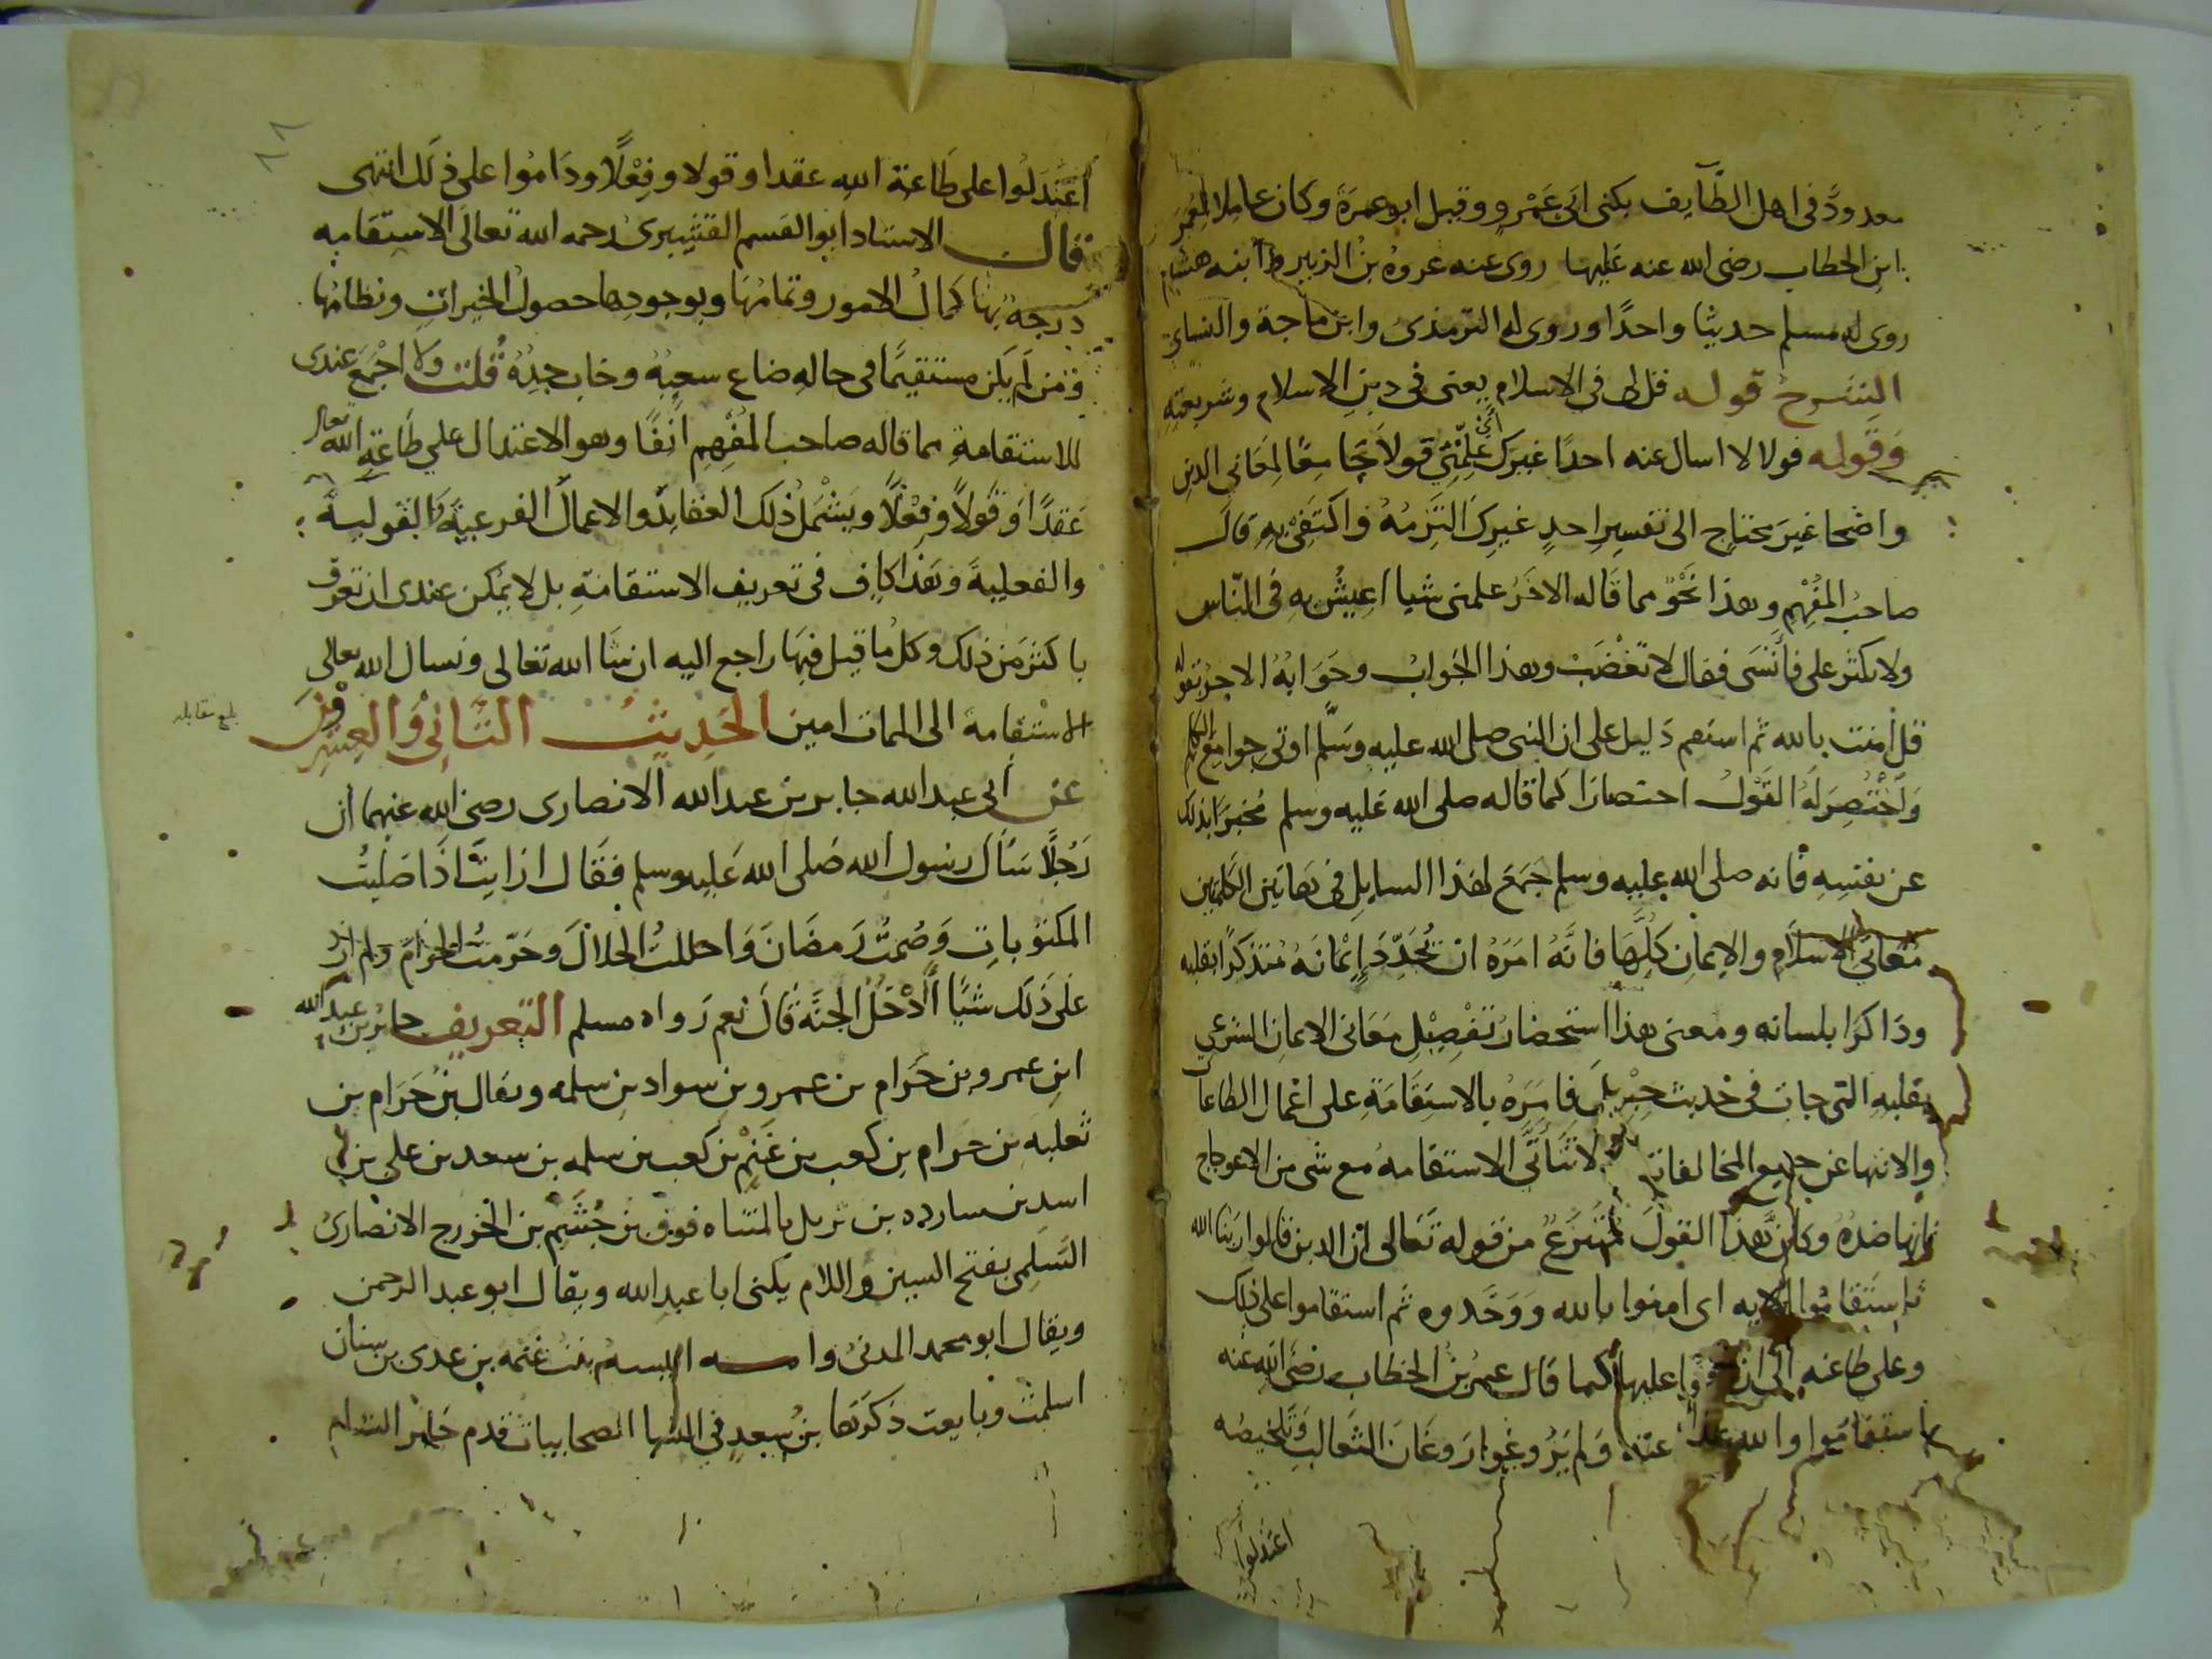 معدود في اهل الطايف يكنى ابى عَمْرٍو وقيل ابو عمرة وكان عاملا لعمر
ابن الخطاب رضى الله عنه عَليها روى عنه عروة بن الزبير وابنه هشام
روى له مسلم حديثا واحدًا وروى له الترمذى وابن ماجة والنساي
الشرح قوله قل لى فى الاسلام يعنى فى دين الاسلام وشريعته
وقوله قولا لا اسال عنه احدًا غيرك أى علِّمْنى قولاً جَامعًا لمعَانى الدين
واضحا غيرَ محتاج الى تفسير احدٍ غيرك التزمُهُ واكتَفِى بهِ قال
صاحبُ المُفْهِم وهذا نحْوٌ مما قَاله الاخَرُ علمنى شيا اعيشُ به فى النّاس
ولا تكثر على فأنسَى فقال لا تغْضَبْ وهذا الجَوابُ وجَوَابُهُ الاخر بقوله
قل امنت بالله ثم استقم دَليل على ان النبى صلى الله عليه وسَلَّم اوتى جوامع الكلم
وَاخْتُصِرَ لَهُ القَوْلُ اختصارَا كما قاله صلى الله عَليه وسلم مُخبرًا بذلك
عن نفسِهِ فانه صلى الله عليه وسلم جَمَعَ لهذا السايل فى هاتين الكلمتين
مَعَانى الاسلام والايمان كلِّهَا فانَّهُ امَرَهُ ان يُجَدِّدَ إيْمَانَهُ مُتذكرًا بقلبه
وذاكرًا بلسانه ومعنى هذا استحضارُ تفْصِيْل مَعَانى الايمان الشرعي
بقلبهِ التى جات فى حديث جِبْريل فامَرَهُ بالاستِقَامَةِ على اعْمال الطاعات
والانتها عن جميع المخالفات لا تتَأَتَّى الاستقامهُ مع شى من الاعوجاج
فانها ضدُهُ وكانَّ هذا القولَ مُنْتزعٌ من قوله تَعَالى ان الدين قالوا ربنا الله
ثم استَقَامُوا الايه اى امنوا بالله ووَحَّدوه ثم استقاموا على ذلك
وعلى طاعته الى ان عليها كما قال عمر بن الخطاب رضى الله عنه
استقامُوا والله عنه وَلم يَرُوغوا رَوغَانَ الثعالب وتلخيصُه
اعتدلوا
اعْتَدَلُوا على طَاعة الله عقدا وقولا وفِعْلًا ودَامُوا على ذلَك انتهى
قال الاستاد ابو القسم القشيرىُ رحمه الله تعَالى الاستِقَامه
درجةٌ بهَا كمالُ الامور وتمَامُهَا وبوجودها حصولُ الخيراتِ ونظامُها
ومن لَم يَكن مستقيمًا فى حالهِ ضاع سعيُهُ وخابَ جِدُهُ قُلت ولا اجْمَعَ عندى
للاستقامةِ مما قاله صاحب المُفْهِم انفًا وهو الاعتدال علي طَاعَةِ الله تعالى
عَقدًا وَقَولاً وَفِعْلًا ويَشْمَلُ ذلك العقايدَ والاعمالَ الفرعيّةَ القوليةَ
والفعليةَ وَهذا كافٍ فى تعريف الاستقامَةِ بل لا يمكن عندى ان تعرّفَ
باكثرَ من ذلك وكل ما قيل فيهَا راجع اليه ان شا الله تعالى ونسال الله تعالى
الاستقامة الى الممات امين الحَدِيثُ الثَّانِي وَالعِشْرون
بلغ مقابله
عن أبى عبد الله جابر بن عبد الله الانصارى رضى الله عنهما أن
رَجُلًا سَأل رسول الله صَلى الله عَليه وسلم فقَال ارايتَ اذَا صَليتُ
المكتوباتِ وَصُمتُ رَمضَانَ وَاحللتُ الحلالَ وحَرّمتُ الحرامَ ولم ازد
على ذَلكَ شيًا أَأَدْخُلُ الجنَّةَ قَالَ نعم رَواه مسلم التعريف جابر بن عبد الله
ابن عمرو بن حَرَام بن عمرو بن سواد بن سلمه ويقال بن حَرَام بن
ثعلبه بن حرام بن كعب بن غَنْم بن كعب بن سلمه بن سعد بن على بن
اسد بن سارده بن تريل بالمثناه فوق بن جُشَم بن الخزرج الانصارىُ
السَلمى بفتح السين واللام يكنى ابا عبد الله ويقال ابو عبد الرحمن
ويقال ابو محمد المدنىُ وامه انيسه بنت غنمه بن عدى بن سنان
اسلمت وبايعت ذكرَهَا بنُ سعدٍ في الصحابيات قدم جَابر الشام